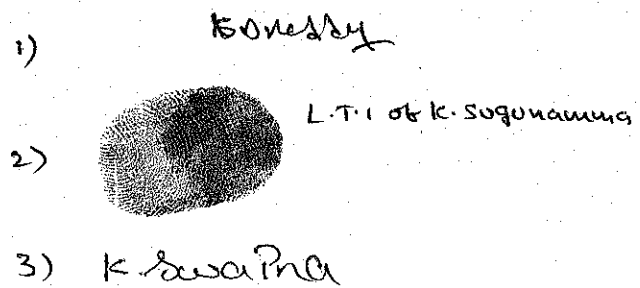 1)
2) L.T.I of K. Sugunamma
3) K Swapna